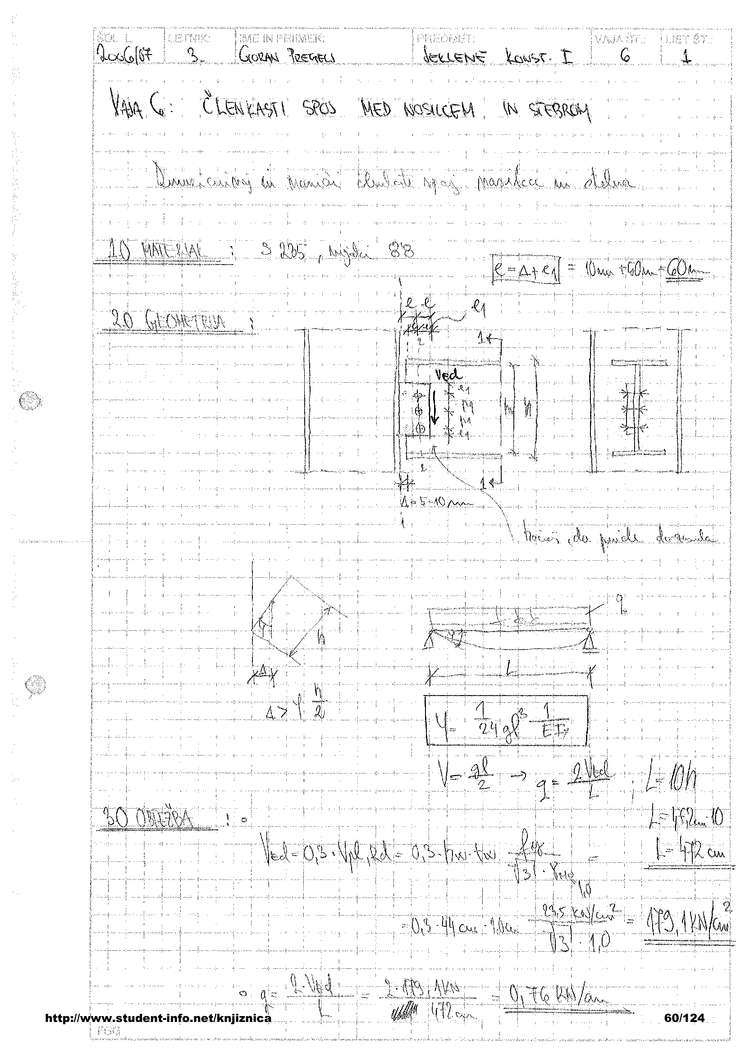 ŠOL. L. LETNIK: IME IN PRIIMEK: PREDMET: VAJA ŠT.: LIST ŠT.
2006/07 3. GORAN PREGELJ JEKLENE KONST. I 6 1
VAJA 6: ČLENKASTI SPOJ MED NOSILCEM IN STEBROM
spoj nosilca in stebra
1.0 MATERIAL : S 235, vijaki 8.8
e = Δ + e1 = 10mm + 50mm = 60mm
2.0 GEOMETRIJA :
e e e1
1
Ved
e1
M
M
e1
h
1
Δ = 5-10 mm
da pride do
h
Δ
Δ > φ h/2
q
L
φ = 1/24 ql³ 1/EIy
V = ql/2 → q = 2Ved/L ; L = 10h
L = 47,2cm · 10
L = 472 cm
3.0 OBTEŽBA :
Ved = 0,3 · Vpl,Rd = 0,3 · hw · tw · fy/(√3 · γM0) =
1,0
= 0,3 · 44cm · 1,0cm · 23,5 kN/cm²/(√3 · 1,0) = 179,1 kN/cm²
q = 2·Ved/L = 2·179,1kN/472cm = 0,76 kN/cm
http://www.student-info.net/knjiznica 60/124
FGG